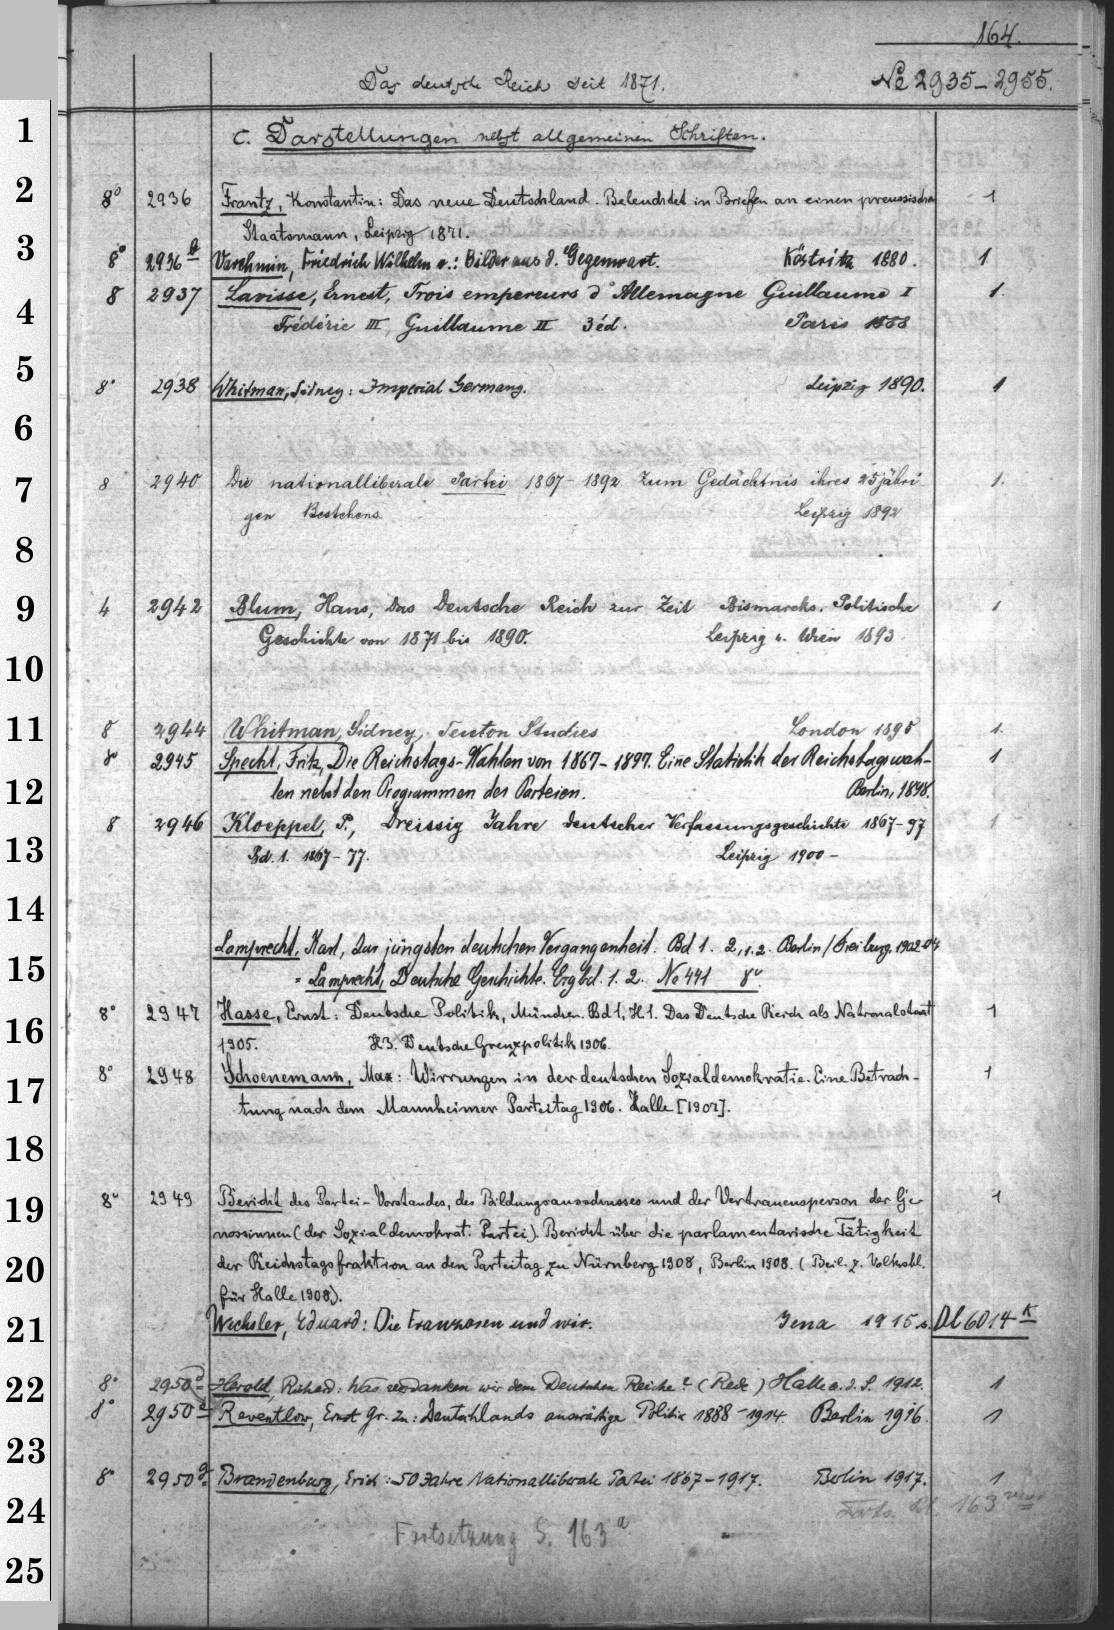 164.
Das deutsche Reich seit 1871.
No 2935-2955.
c. Darstellungen nebst allgemeinen Schriften.
8° 2936 Frantz, Konstantin: Das neue Deutschland. Beleuchtet in Briefen an einen preussischen 1
Staatsmann, Leipzig 1871.
8° 2936 b Varchmin, Friedrich Wilhelm v.: Bilder aus d. Gegenwart. Köstritz 1880. 1
8 2937 Lavisse, Ernest, Trois empereurs d'Allemagne Guillaume I 1.
Frédéric III, Guillaume II 3 éd. Paris 1888
8° 2938 Whitman, Sidney: Imperial Germany. Leipzig 1890. 1
8 2940 Die nationalliberale Partei 1867-1892 Zum Gedächtnis ihres 25jähri 1.
gen Bestehens. Leipzig 1892
4 2942 Blum, Hans, Das Deutsche Reich zur Zeit Bismarcks. Politische 1
Geschichte von 1871 bis 1890. Leipzig u. Wien 1893
8 2944 Whitman, Sidney, Teuton Studies London 1895 1.
8° 2945 Specht, Fritz, Die Reichstags-Wahlen von 1867-1897. Eine Statistik der Reichstagswah- 1
len nebst den Programmen der Parteien. Berlin, 1898.
8 2946 Kloeppel, P., Dreissig Jahre deutscher Verfassungsgeschichte 1867-97 1
Bd. 1. 1867-77. Leipzig 1900-
Lamprecht, Karl, Zur jüngsten deutschen Vergangenheit. Bd 1. 2,1.2. Berlin/Freiburg, 1902-04
= Lamprecht, Deutsche Geschichte. Ergbd. 1. 2. No 441 8°.
8° 2947 Hasse, Ernst: Deutsche Politik, München. Bd 1, H 1. Das Deutsche Reich als Nationalstaat 1
1905. H3. Deutsche Grenzpolitik 1906.
8° 2948 Schoenemann, Max: Wirrungen in der deutschen Sozialdemokratie. Eine Betrach- 1
tung nach dem Mannheimer Parteitag 1906. Halle [1907].
8° 2949 Bericht des Partei-Vorstandes, des Bildungsausschusses und der Vertrauensperson der Ge- 1
nossinnen (der Sozialdemokrat. Partei). Bericht über die parlamentarische Tätigkeit
der Reichstagsfraktion an den Parteitag zu Nürnberg 1908, Berlin 1908. (Beil. z. Volksbl.
für Halle 1908).
Wechsler, Eduard: Die Franzosen und wir. Jena 1915 s. Dl 6014 K
8° 2950 Herold, Richard: Was verdanken wir dem Deutschen Reiche? (Rede) Halle a. d. S. 1912. 1
8° 2950 Reventlow, Ernst Gr. zu: Deutschlands auswärtige Politik 1888-1914 Berlin 1916. 1
8° 2950 g Brandenburg, Erich: 50 Jahre Nationalliberale Partei 1867-1917. Berlin 1917. 1
Forts. Bl. 163
Fortsetzung S. 163 a
1
2
3
4
5
6
7
8
9
10
11
12
13
14
15
16
17
18
19
20
21
22
23
24
25